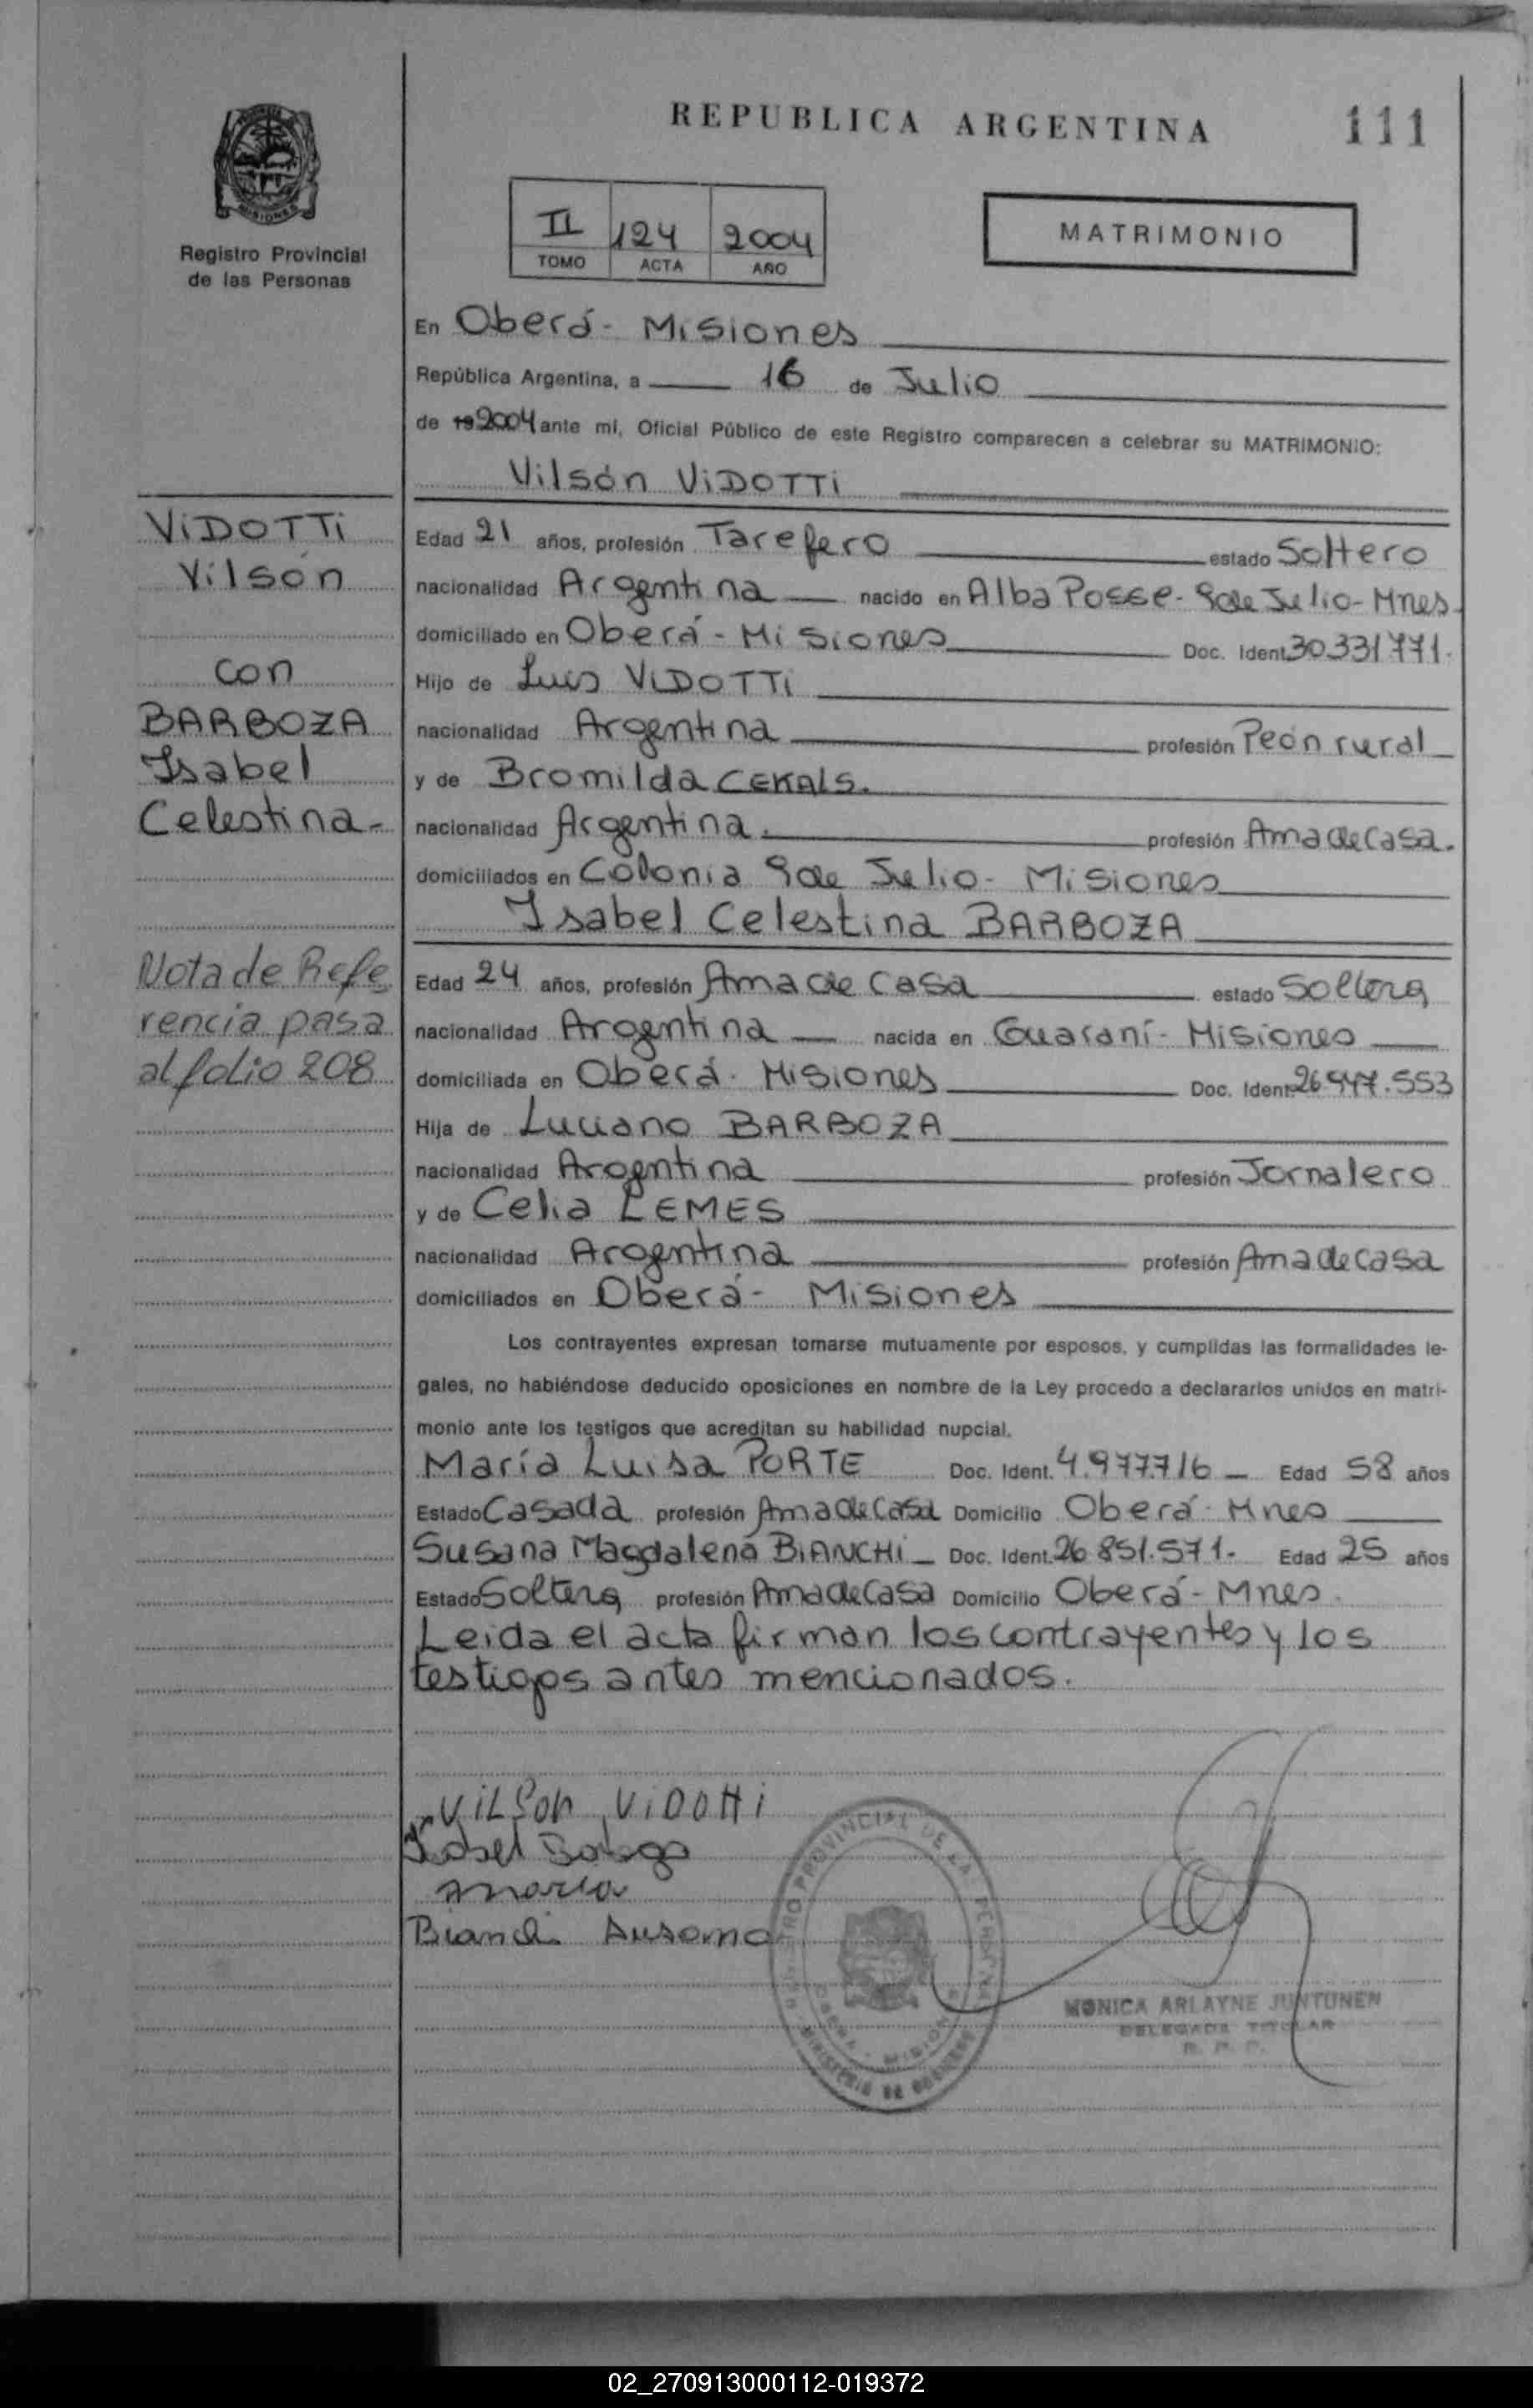 REPUBLICA ARGENTINA
111
MISIONES
Registro Provincial
de las Personas
II 124 2004
TOMO ACTA AÑO
MATRIMONIO
En Oberá - Misiones
República Argentina, a 16 de Julio
de 19 2004 ante mí, Oficial Público de este Registro comparecen a celebrar su MATRIMONIO:
Vilsón ViDOTTi
ViDOTTi
Vilsón
con
BARBOZA
Isabel
Celestina -
Nota de Refe
rencia pasa
al folio 208
Edad 21 años, profesión Tarefero estado Soltero
nacionalidad Argentina nacido en Alba Posse - 9 de Julio - Mnes
domiciliado en Oberá - Misiones Doc. Ident. 30.331771.
Hijo de Luis ViDOTTi
nacionalidad Argentina profesión Peón rural
y de Bromilda CEKALS.
nacionalidad Argentina. profesión Ama de Casa.
domiciliados en Colonia 9 de Julio - Misiones
Isabel Celestina BARBOZA
Edad 24 años, profesión Ama de Casa estado Soltera
nacionalidad Argentina nacida en Guaraní - Misiones
domiciliada en Oberá - Misiones Doc. Ident. 26.947.553
Hija de Luciano BARBOZA
nacionalidad Argentina profesión Jornalero
y de Celia LEMES
nacionalidad Argentina profesión Ama de Casa
domiciliados en Oberá - Misiones
Los contrayentes expresan tomarse mutuamente por esposos, y cumplidas las formalidades le-
gales, no habiéndose deducido oposiciones en nombre de la Ley procedo a declararlos unidos en matri-
monio ante los testigos que acreditan su habilidad nupcial.
María Luisa PORTE Doc. Ident. 4.977.716 - Edad 58 años
Estado Casada profesión Ama de Casa Domicilio Oberá - Mnes
Susana Magdalena BiANCHi - Doc. Ident. 26.851.571. Edad 25 años
Estado Soltera profesión Ama de Casa Domicilio Oberá - Mnes.
Leida el acta firman los contrayentes y los
testigos antes mencionados.
ViLSon ViDOtti
Isabel
maria
Bianchi Susana
REGISTRO PROVINCIAL DE LAS PERSONAS
OBERA - MISIONES
MINISTERIO DE GOBIERNO
MONICA ARLAYNE JUNTUNEN
DELEGADA TITULAR
R. P. P.
02_270913000112-019372